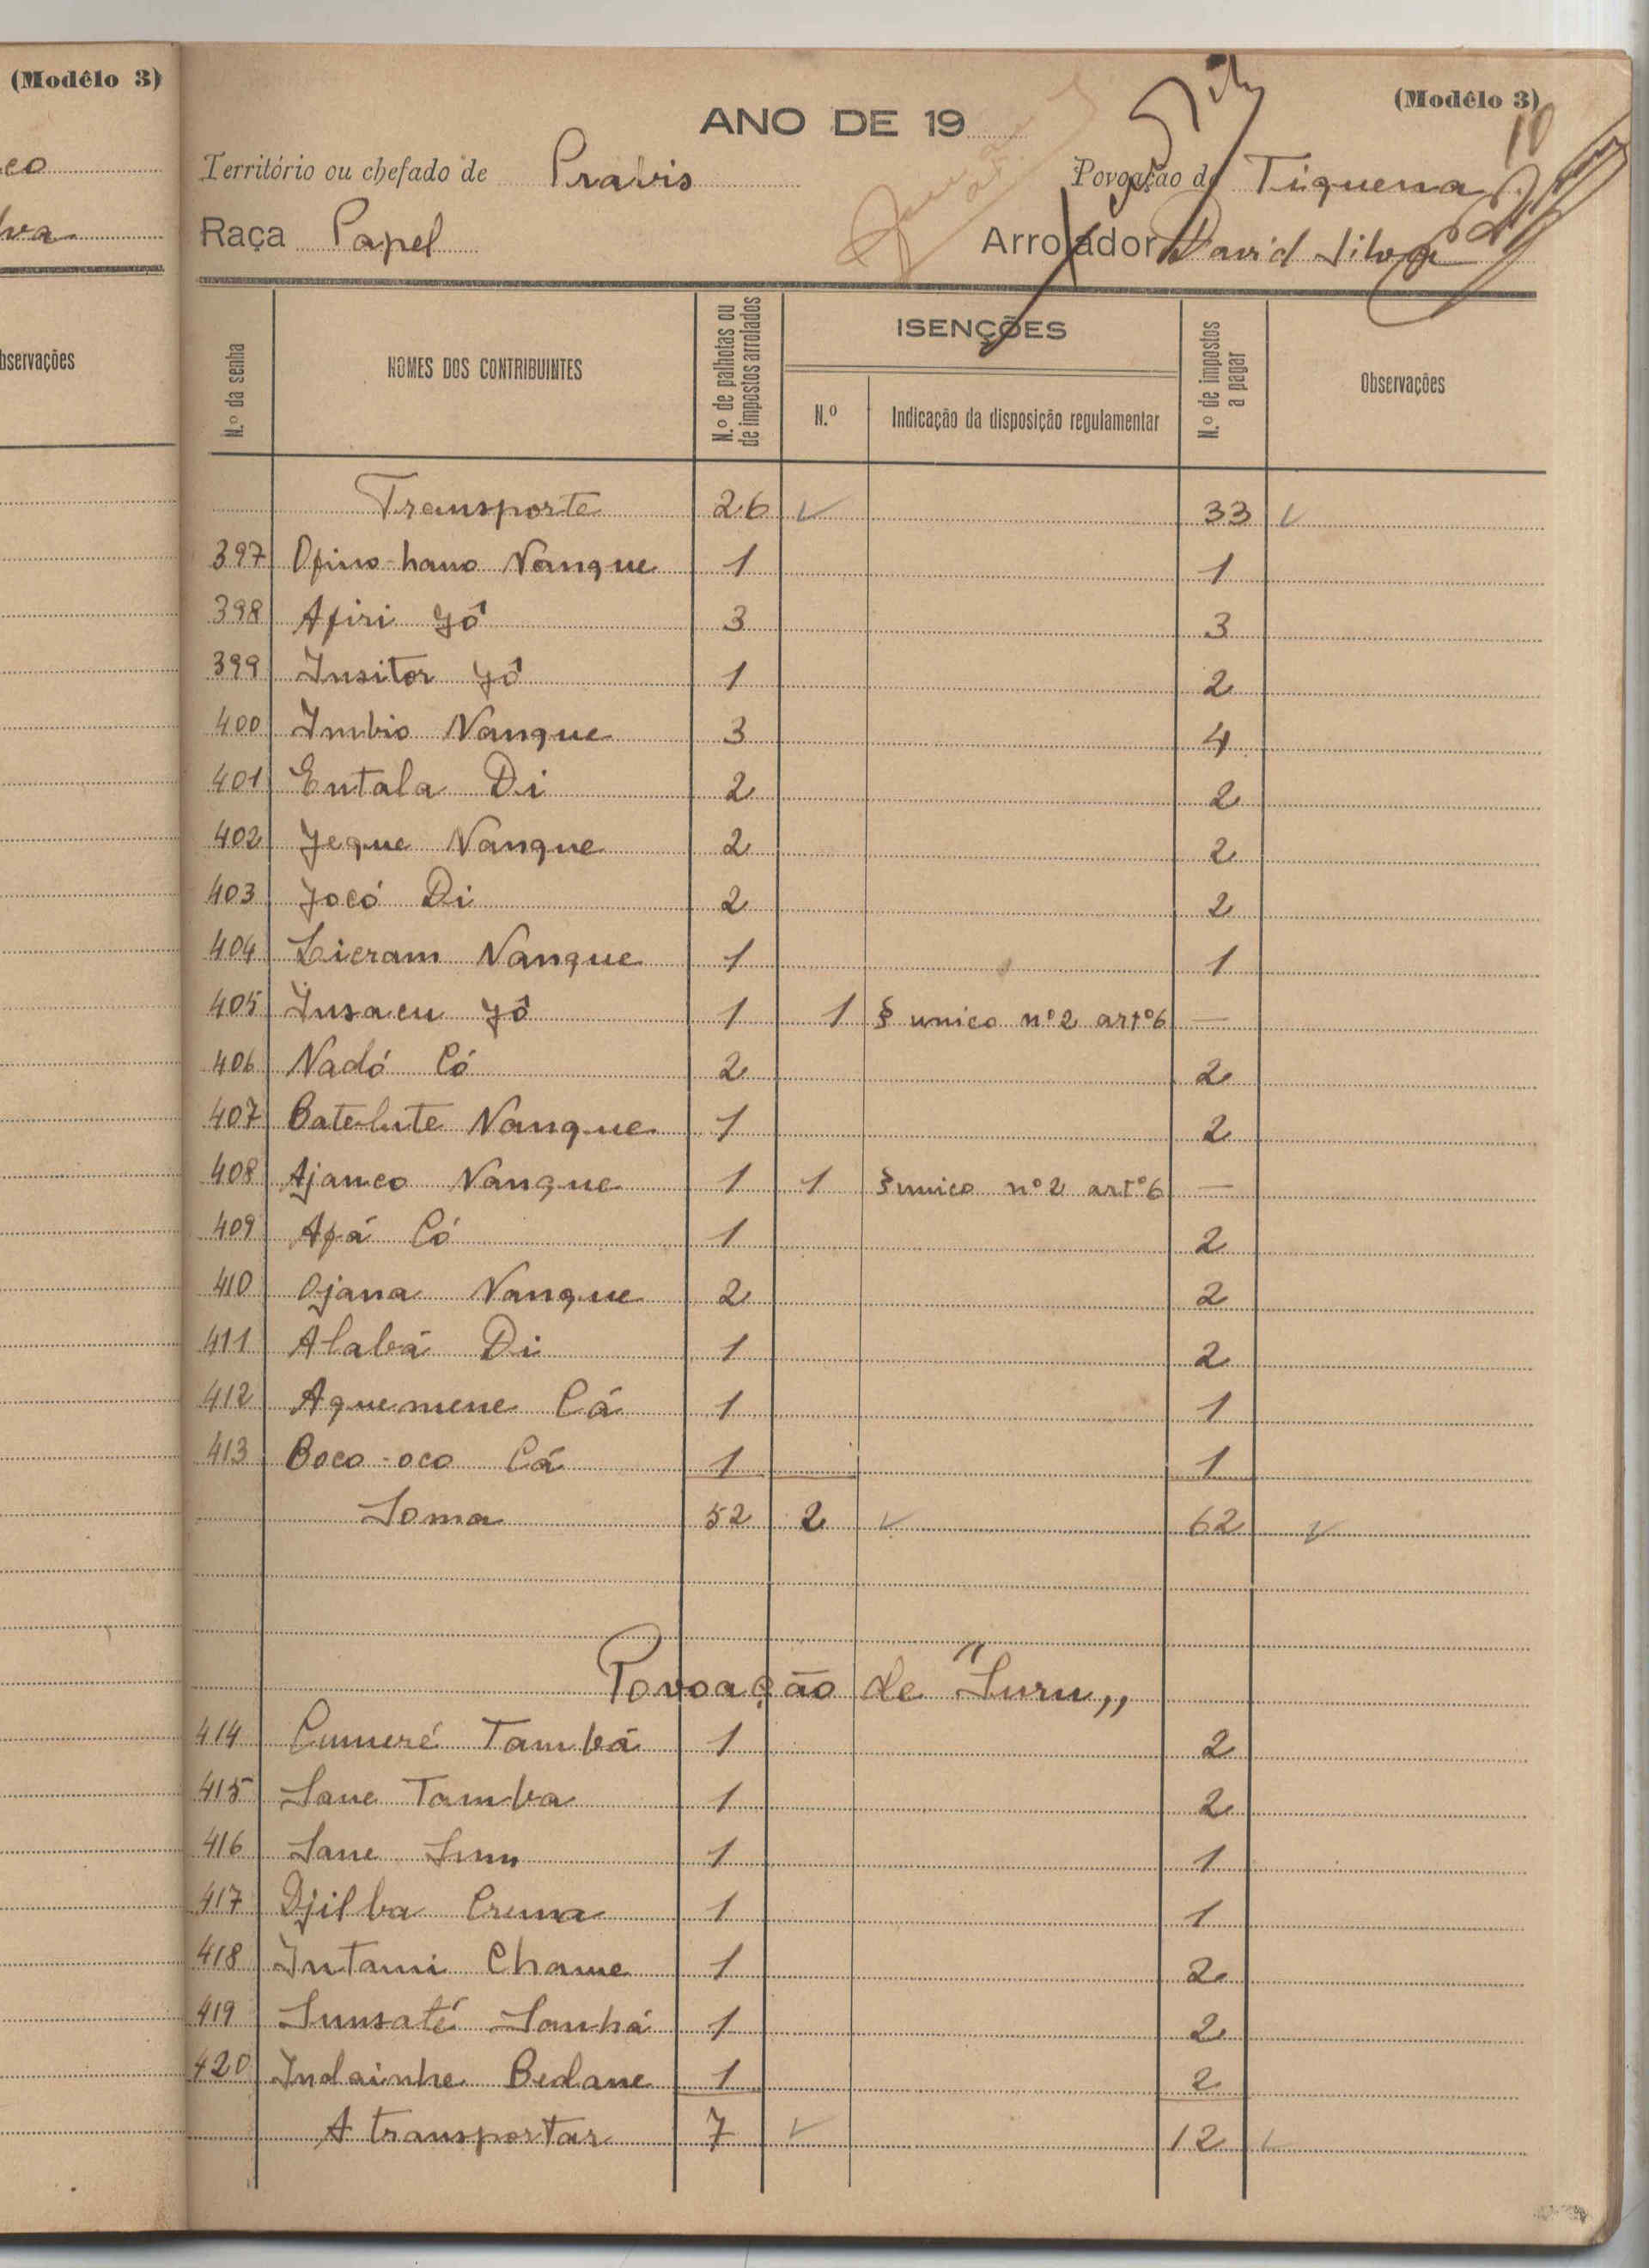 (Modêlo 3)
(Modêlo 3)
10
ANO DE 19
Território ou chefado de Prabis Povoação de Tiquena
Raça Papel Arrolador David Silva
Observações
N.º da senha
NOMES DOS CONTRIBUINTES
N.º de palhotas ou de impostos arrolados
ISENÇÕES
N.º
Indicação da disposição regulamentar
N.º de impostos a pagar
Observações
Transporte 26 33
397 Opino-hano Nanque 1 1
398 Apiri Yô 3 3
399 Insitor Yô 1 2
400 Imbio Nanque 3 4
401 Entala Di 2 2
402 Jeque Nanque 2 2
403 Jocó Di 2 2
404 Licram Nanque 1 1
405 Insacu Yô 1 1 § unico nº 2 artº 6 —
406 Nadó Có 2 2
407 Batelute Nanque 1 2
408 Ajanco Nanque 1 1 § unico nº 2 artº 6 —
409 Apá Có 1 2
410 Ojana Nanque 2 2
411 Alabá Di 1 2
412 Aquemene Cá 1 1
413 Boco-oco Cá 1 1
Soma 52 2 62
Povoação de "Suru„
414 Cumeré Tambá 1 2
415 Sane Tamba 1 2
416 Sane 1 1
417 Djilba 1 1
418 Intami Chame 1 2
419 Sunsaté Sanhá 1 2
420 Indainhe Bedane 1 2
A transportar 7 12